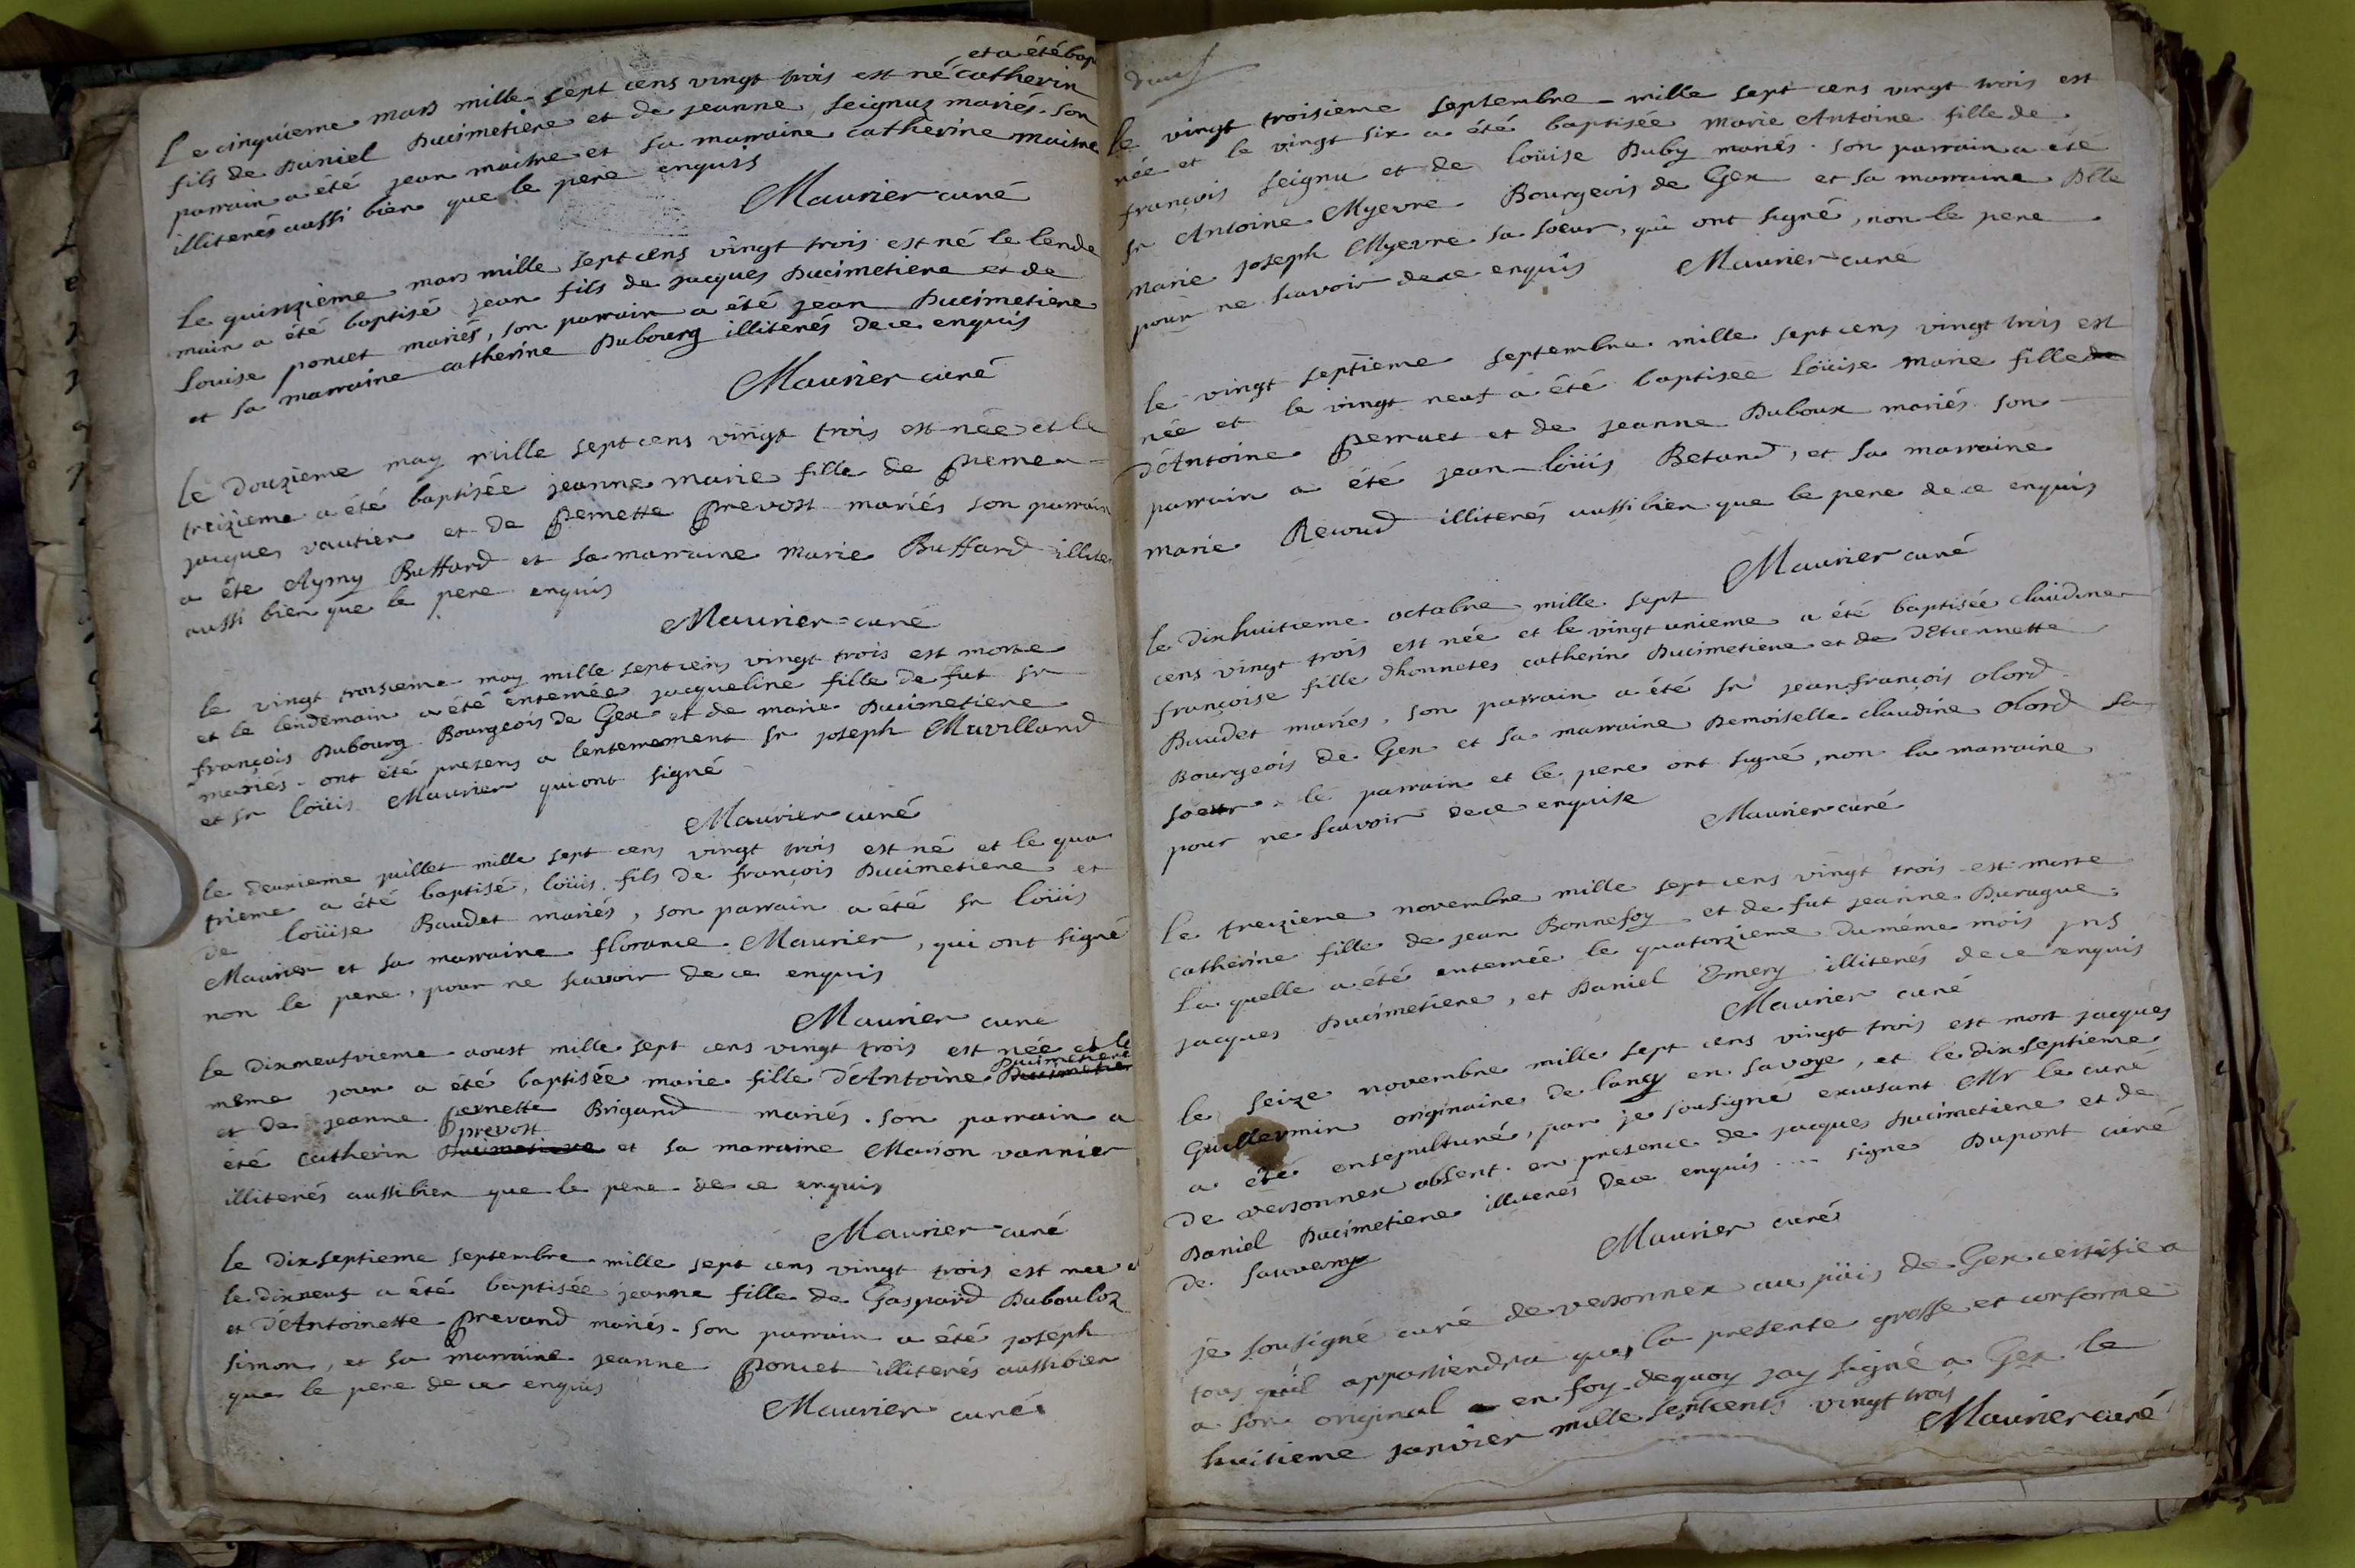 et a été bap
Le cinquieme mars mille sept cens vingt trois est né catherin
fils de Daniel Ducimetiere et de jeanne Seignuz mariés. son
parrain a été jean maitre et sa marraine catherine maitre
illiterés aussi bien que le pere enquis
Maurier curé
Le quinzieme mars mille sept cens vingt trois est né le lende
main a été baptisé jean fils de jacques Ducimetiere et de
Louise poncet mariés, son parrain a été jean Ducimetiere
et sa marraine catherine Dubourg illiterés de ce enquis
Maurier curé
le Douzieme may mille sept cens vingt trois est née et le
treizieme a été baptisée jeanne marie fille de pierre
jacques vautier et de pernette prevost mariés son parrain
a été Aymy Buffard et sa marraine marie Buffard illiter
aussi bien que le pere enquis
Maurier curé
le vingt troisieme may mille sept cens vingt trois est morte
et le lendemain a été enterrée jacqueline fille de fut sr
françois Dubourg Bourgeois de Gex et de marie Ducimetiere
mariés. ont été presens a lenterrement sr joseph Muvilland
et sr loüis Maurier qui ont signé
Maurier curé
le deuxieme juillet mille sept cens vingt trois est né et le qua
trieme a été baptisé, loüis fils de françois Ducimetiere et
de loüise Baudet mariés, son parrain a été sr loüis
Maurier et sa marraine florance Maurier, qui ont signé
non le pere, pour ne scavoir de ce enquis
Maurier curé
le dixneufvieme aoust mille sept cens vingt trois est née et le
Ducimetiere
même jour a été baptisée marie fille d'Antoine Ducimetiere
et de jeanne pernette Brigand mariés. son parrain a
prevost
été catherin Ducimetiere et sa marraine Marion vannier
illiterés aussi bien que le pere de ce enquis
Maurier curé
le dixseptieme septembre mille sept cens vingt trois est née e
le dixneuf a été baptisée jeanne fille de Gaspard Dubouloz
et d'Antoinette prevand mariés. son parrain a été joseph
simon, et sa marraine jeanne poncet illiterés aussi bien
que le pere de ce enquis
Maurier curé
le vingt troisieme septembre mille sept cens vingt trois est
née et le vingt six a été baptisée marie Antoine fille de
françois seignu et de loüise Duby mariés. son parrain a été
sr Antoine Myevre Bourgeois de Gex et sa marraine Dlle
marie joseph Myevre sa soeur, qui ont signé, non le pere
pour ne scavoir de ce enquis Maurier curé
le vingt septieme septembre mille sept cens vingt trois est
née et le vingt neuf a été baptisée loüise marie fille de
d'Antoine perruet et de jeanne Duboux mariés son
parrain a été jean-loüis Betand, et sa marraine
marie Recoud illiterés aussi bien que le pere de ce enquis
Maurier curé
le dixhuitieme octobre mille sept
cens vingt trois est née et le vingt unieme a été baptisée claudine
françoise fille d'honnetes catherin Ducimetiere et de d'Etiennette
Baudet mariés, son parrain a été sr jean françois olord
Bourgeois de Gex et sa marraine Demoiselle claudine olord sa
soeur. le parrain et le pere ont signé, non la marraine
pour ne scavoir de ce enquise Maurier curé
le treizieme novembre mille sept cens vingt trois est morte
catherine fille de jean Bonnefoy et de fut jeanne Duragué
la quelle a été enterrée le quatorzieme du même mois pns
jacques Ducimetiere, et Daniel Emery illiterés de ce enquis
Maurier curé
le seize novembre mille sept cens vingt trois est mort jacques
Guillermin originaire de lancy en savoye, et le dixseptieme
a été ensepulturé, par je sousigné excusant Mr le curé
de versonnex absent. en presence de jacques Ducimetiere et de
Daniel Ducimetiere illiterés de ce enquis .... signé Dupont curé
de sauverny Maurier curé
je sousigné curé de versonnex au païs de Gex certifie a
tous quil appartiendra que la presente grosse et conforme
a son original en foy de quoy jay signé a Gex le
huitieme janvier mille sept cents vingt trois
Maurier curé